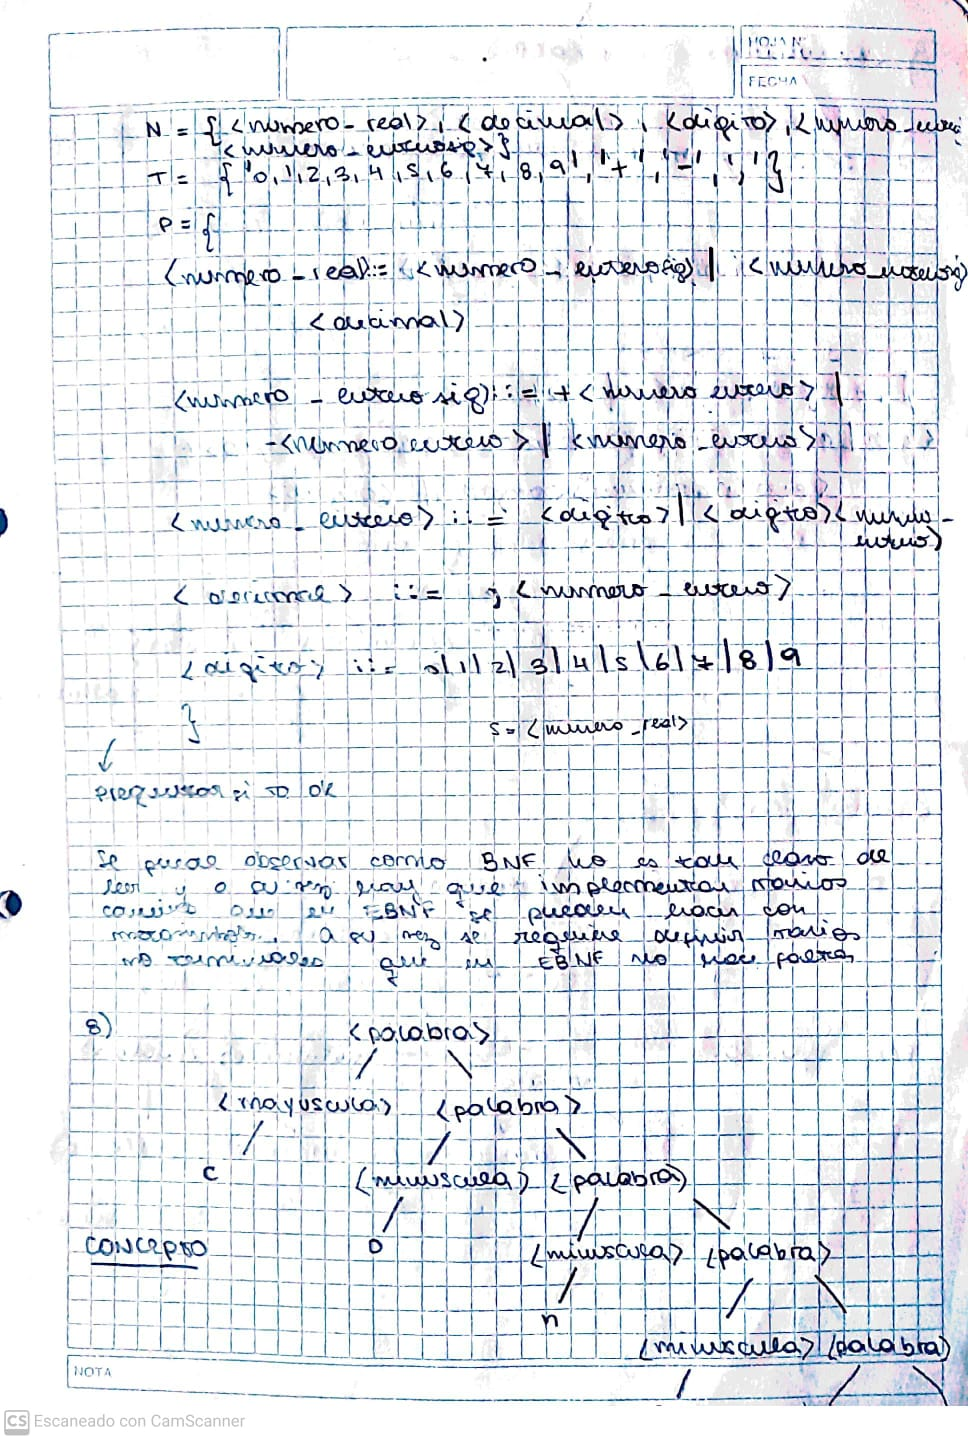 HOJA Nº
FECHA
N = { <numero-real>, <decimal>, <digito>, <numero-
<numero-enterosig> }
T = { '0,1,2,3,4,5,6,7,8,9', '+', '-', ';' }
P = {
<numero-real> ::= <numero-enterosig> | <numero_enterosig>
<decimal>
<numero-enterosig> ::= +<numero entero> |
-<numero entero> | <numero_entero>
<numero_entero> ::= <digito> | <digito><numero-
entero>
<decimal> ::= , <numero-entero>
<digito> ::= 0|1|2|3|4|5|6|7|8|9
}
S= <numero_real>
preguntar si ta ok
Se puede observar como BNF no es tan claro de
leer y a su vez hay que implementar varios
en EBNF se pueden hacer con
a su vez se requiere definir varios
no terminales que en EBNF no hace falta
8) <palabra>
<mayuscula> <palabra>
C <minuscula> <palabra>
CONCEPTO o <minuscula> <palabra>
n
<minuscula> <palabra>
NOTA
CS Escaneado con CamScanner